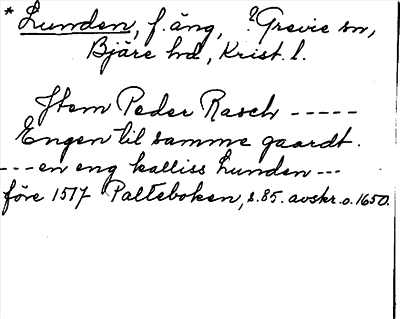 * Lunden, f. äng, ? Grevie sn,
Bjäre hd, Krist. l.
Jtem Peder Rasch -----
Engen til samme gaardt.
--- en eng kalliss Lunden ---
före 1517 Palteboken, s. 85. avskr. o. 1650.